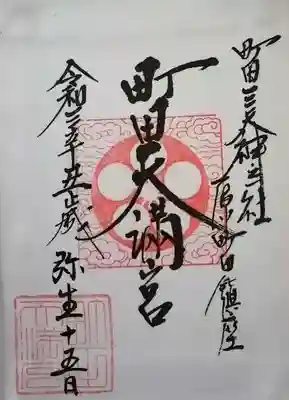 町田三天神之社
原町田鎮座
町田天満宮
令和三辛丑歳 弥生十五日